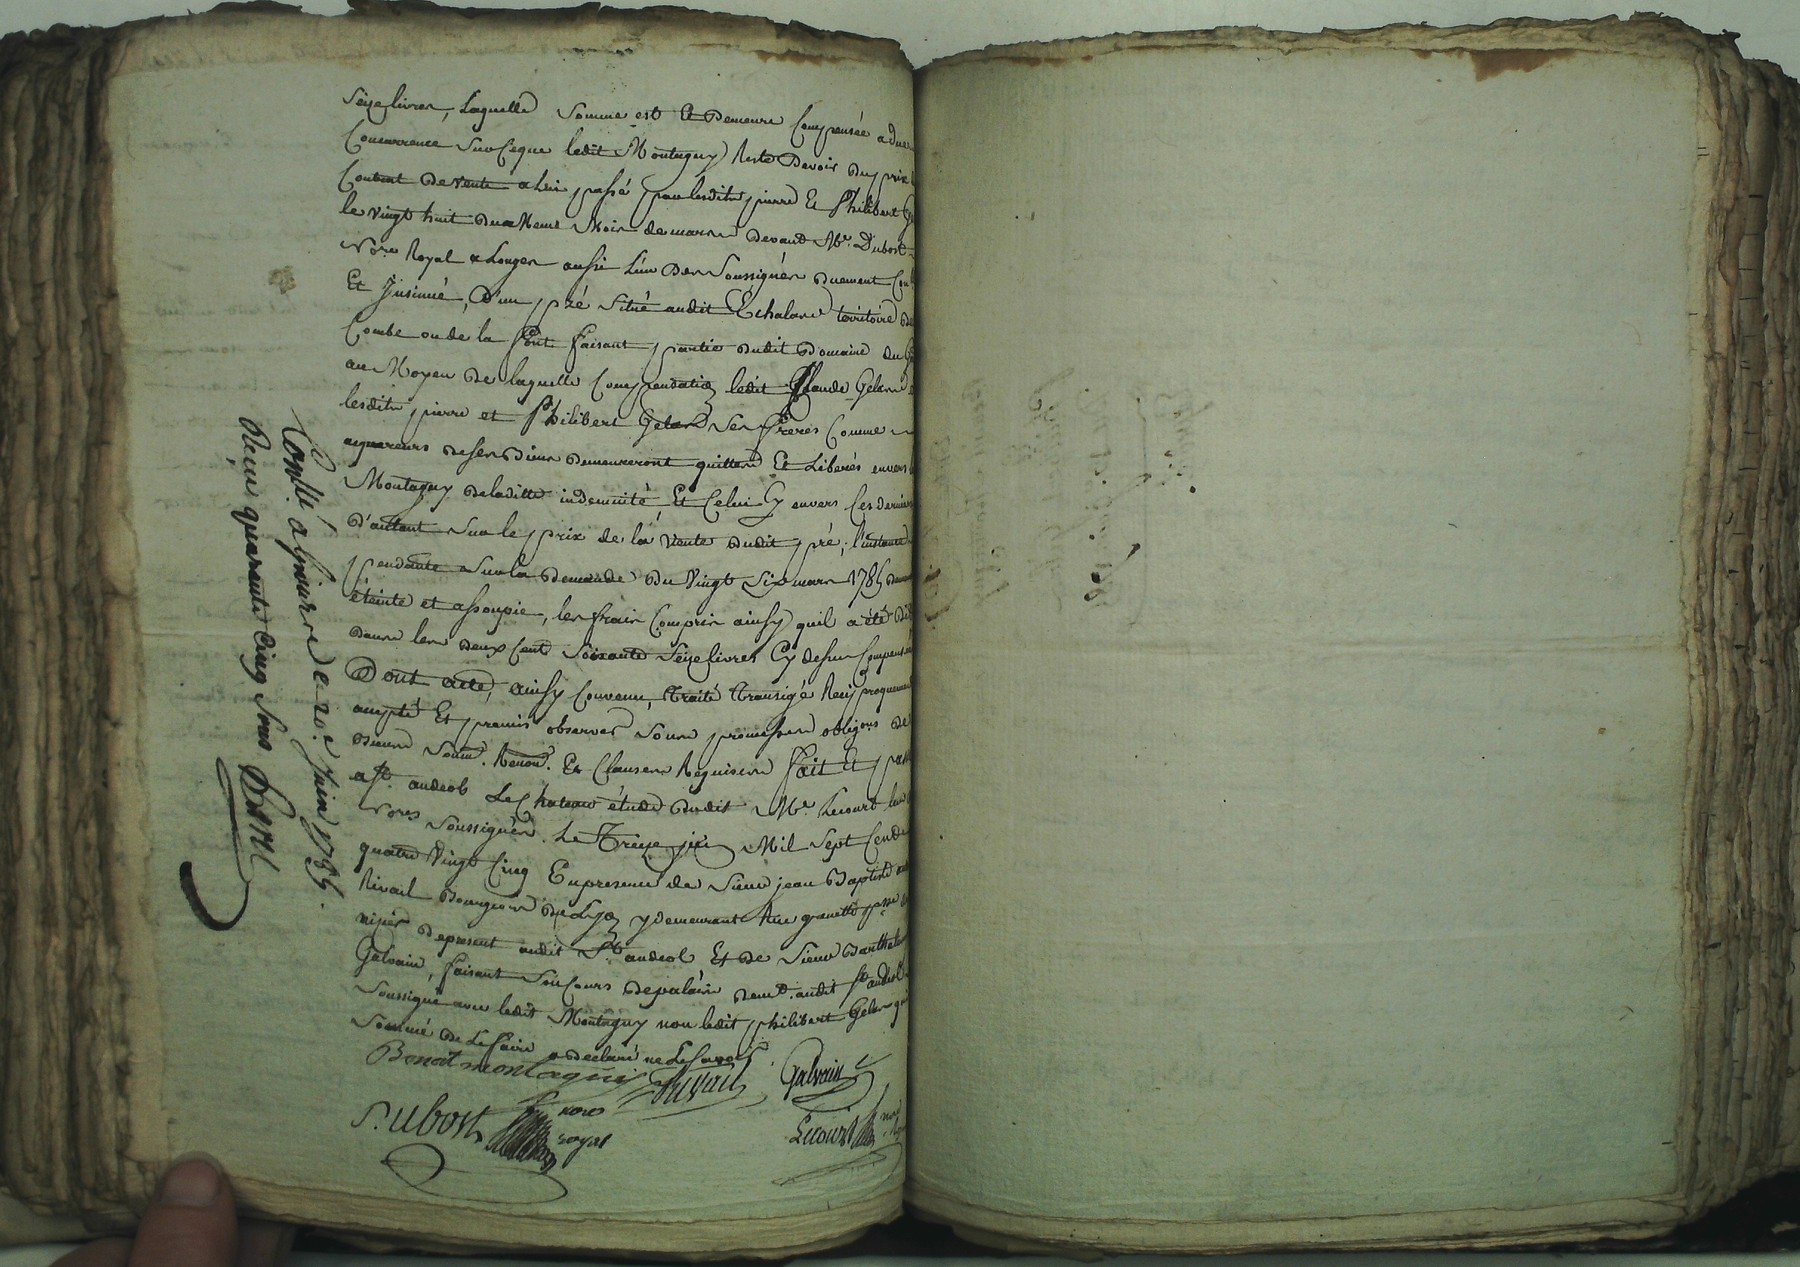 Seize livres, laquelle Somme est Et Demeure Compensée a due
Concurrence Sur Ceque ledit Montagny Reste Devoir du prix
Contrat de vente a lui passé par lesdits pierre Et Philibert
le vingt huit du meme Mois de mars devant Me. Dubost
Nore. Royal a Longes aussi l'un Des Soussignés duement
Et Jnsinué, D'un pré Situé audit Echalas territoire de
Combe ou de la Font faisant partie dudit Domaine du
au Moyen de laquelle Compensation ledit Claude Gelas
lesdits pierre et Philibert Gelas Ses freres Comme
aquereurs deses Biens demeureront quittes Et Liberés envers
Montagny deladitte indemnité Et Celui Cy envers Ces derniers
D'autant Sur le prix de la vente dudit pré, l'instance
pendante Sur la Demande Du vingt Six mars 1785
éteinte et assoupie, les frais Compris ainsy quil a été dit
dans les deux Cent Soixante Seize livres Cy dessus Compensés
Dont acte, ainsy Convenu, Traité Transigé Reciproquement
accepté Et promis observer Sous promesses obligons. de
biens Soum. Renon. Et Clauses Requises fait Et passé
a St. andeol Le Chateau étude dudit Me. Lecourt
Nores Soussignés. Le Treize juin Mil Sept Cend
quatre Vingt Cinq En presence de Sieur jean Baptiste
Rivail Bourgeois de Lyon y demeurant Rue grenette psse.
nisier depresent audit St. andeol Et de Sieur Barthelemy
Galvain, faisant Son Cours depalais demt. audit St andeol
Soussignés avec ledit Montagny non ledit philibert Gelas qui
Sommé de Le faire a Declaré ne Le Savoir
Benoit montagny Rivail Galvain
Dubost nore royal Lecourt
Conllé a Givors le 20e Juin 1785.
Reçu quarante Cinq Sous